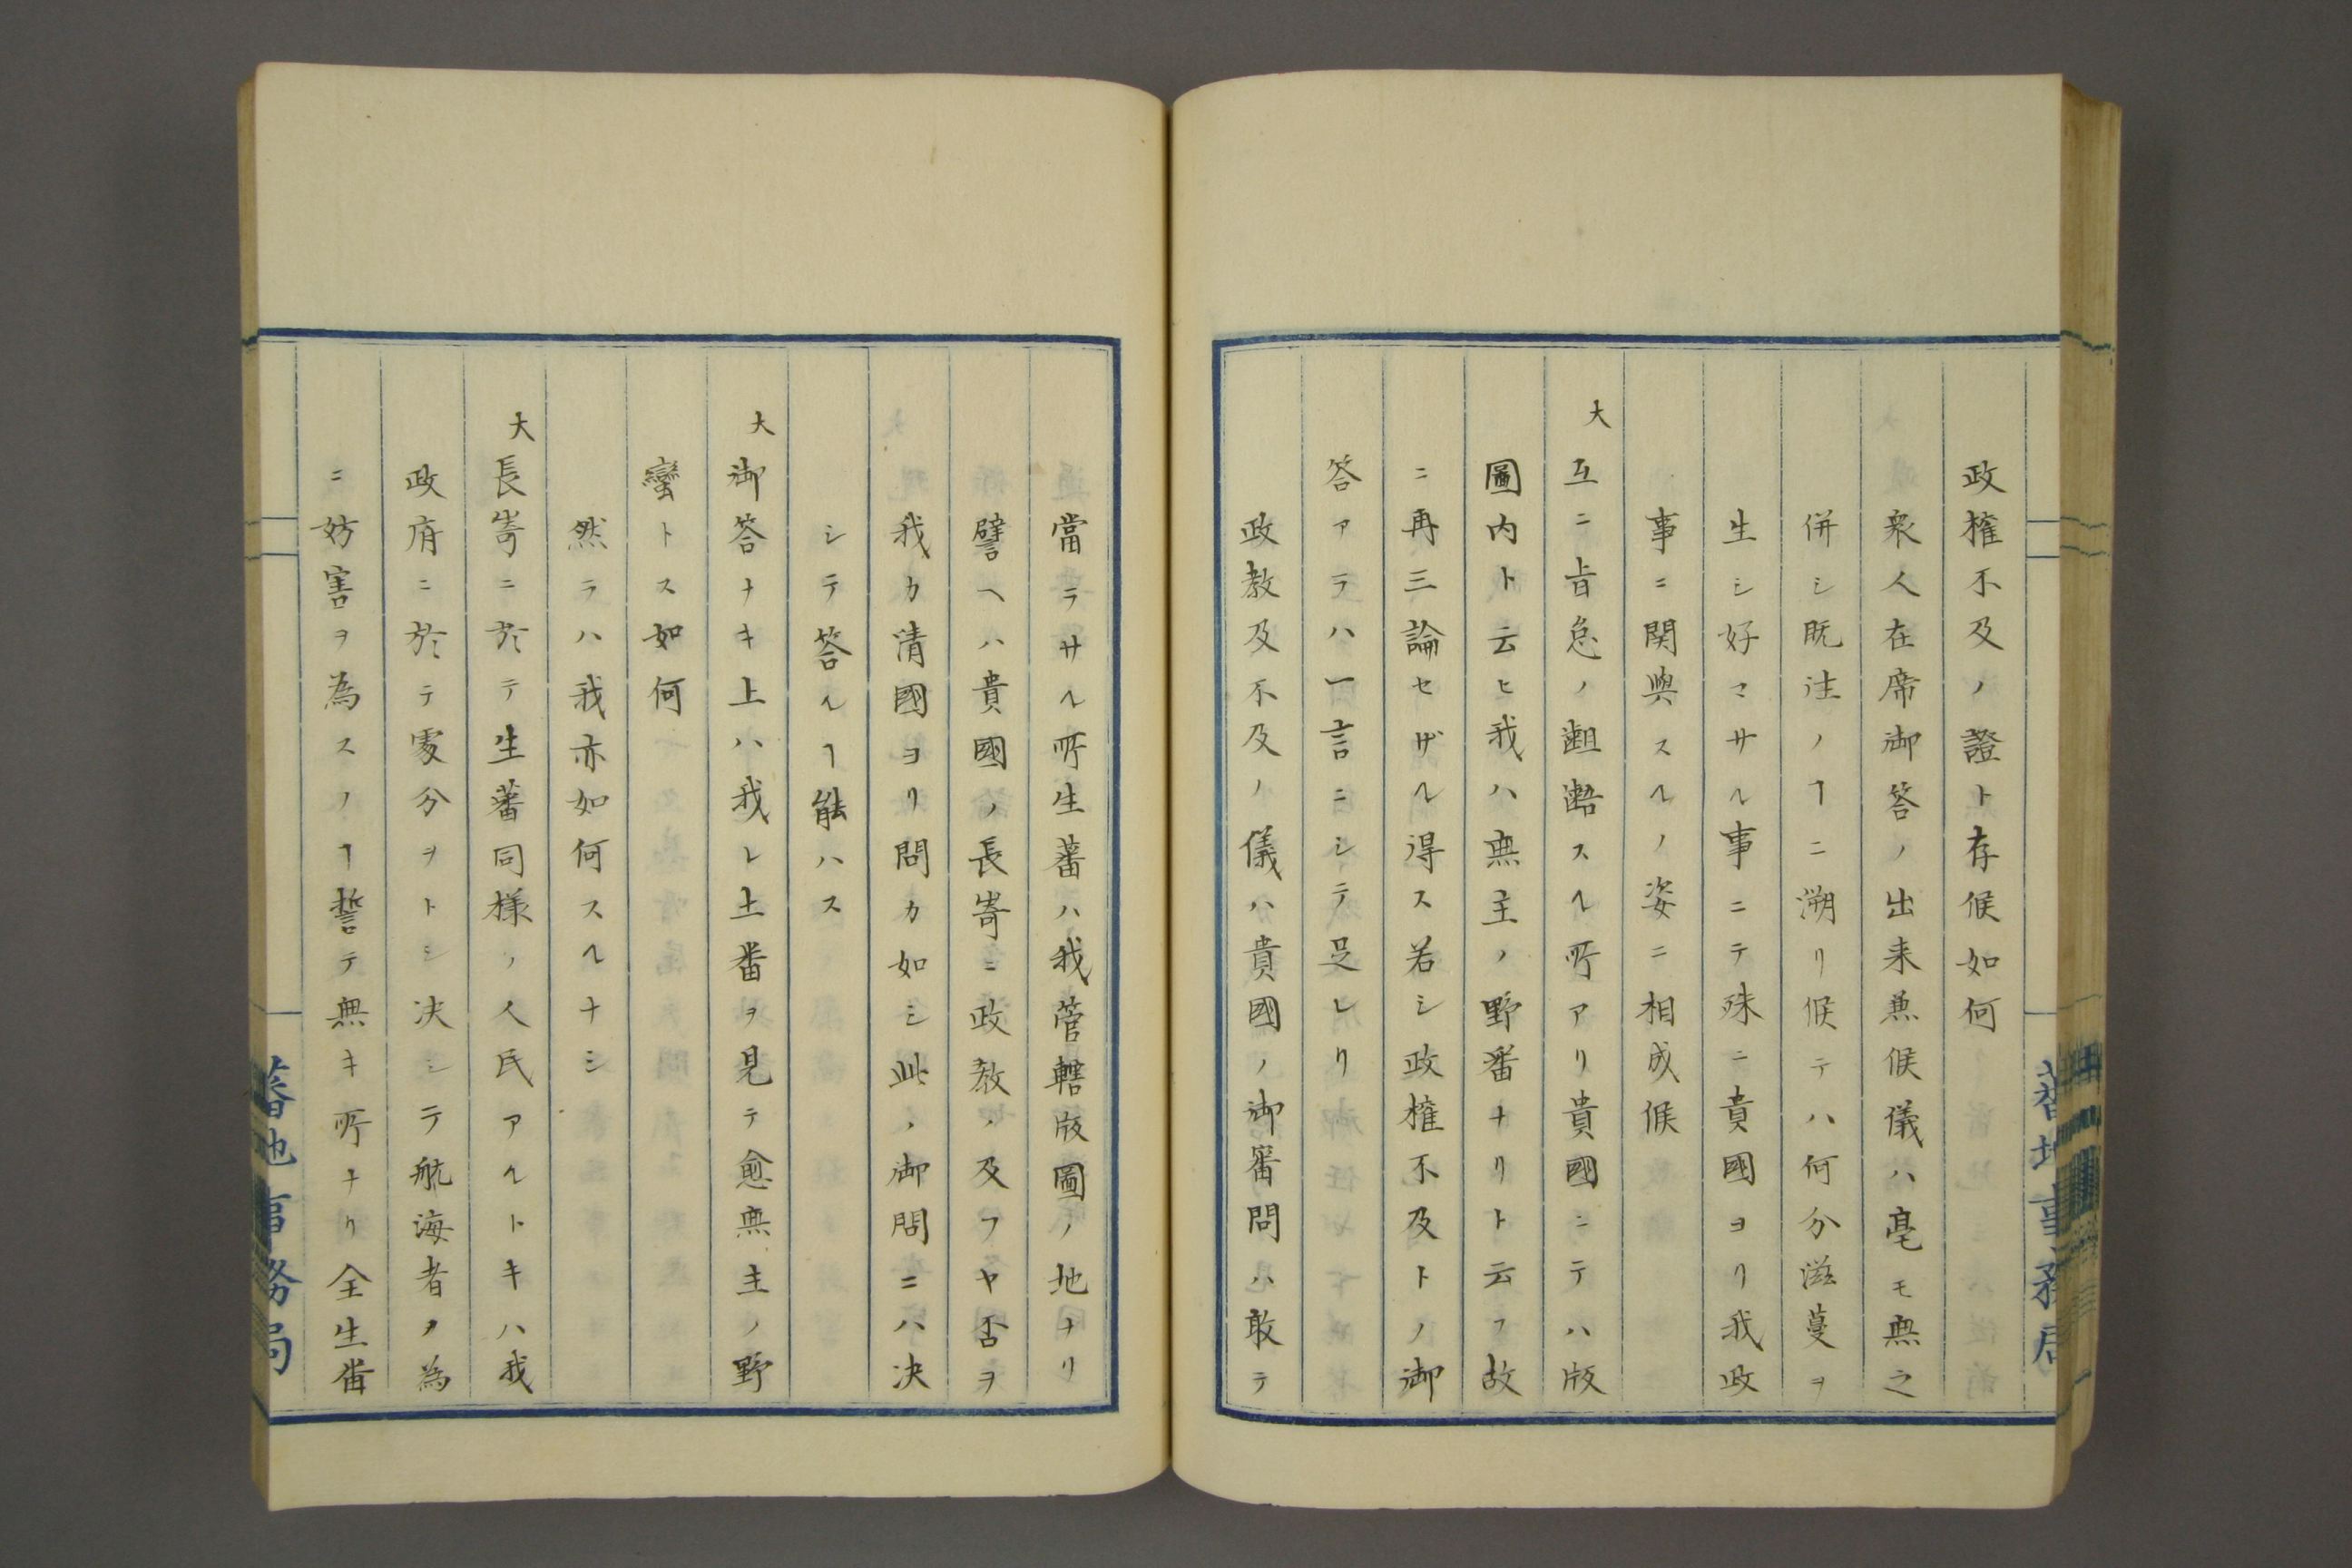 政権不及ノ證ト存候如何
衆人在席御答ノ出来兼候儀ハ毫モ無之
併シ既往ノヿニ溯リ候テハ何分滋蔓ヲ
生シ好マサル事ニテ殊ニ貴國ヨリ我政
事ニ関與スルノ姿ニ相成候
大 互ニ旨意ノ齟齬スル所アリ貴國ニテハ版
圖内ト云ヒ我ハ無主ノ野番ナリト云フ故
ニ再三論セザル得ス若シ政権不及トノ御
答アラハ一言ニシテ足レリ
政教及不及ノ儀ハ貴國ノ御審問ハ敢テ
當ラサル所生蕃ハ我管轄版圖ノ地ナリ
譬ヘハ貴國ノ長嵜ニ政教ノ及フヤ否ヲ
我カ清國ヨリ問カ如シ此ノ御問ニハ决
シテ答ルヿ能ハス
大 御答ナキ上ハ我レ土番ヲ見テ愈無主ノ野
蠻トス如何
然ラハ我亦如何スルナシ
大 長嵜ニ於テ生蕃同様ノ人民アルトキハ我
政府ニ於テ處分ヲトシ决シテ航海者ノ為
ニ妨害ヲ為スノヿ誓テ無キ所ナリ全生番
蕃地事務局